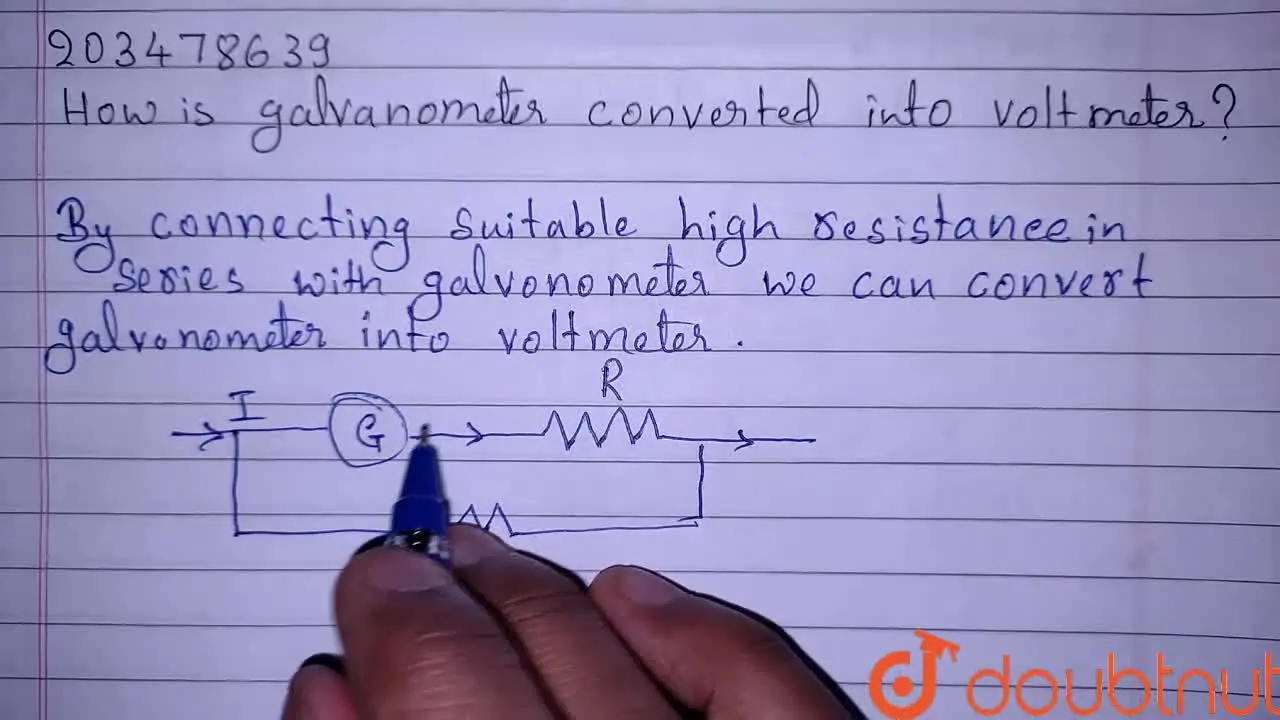 203478639
How is galvanometer converted into voltmeter?
By connecting suitable high resistance in
series with galvonometer we can convert
galvonometer into voltmeter.
R
I
G
doubtnut